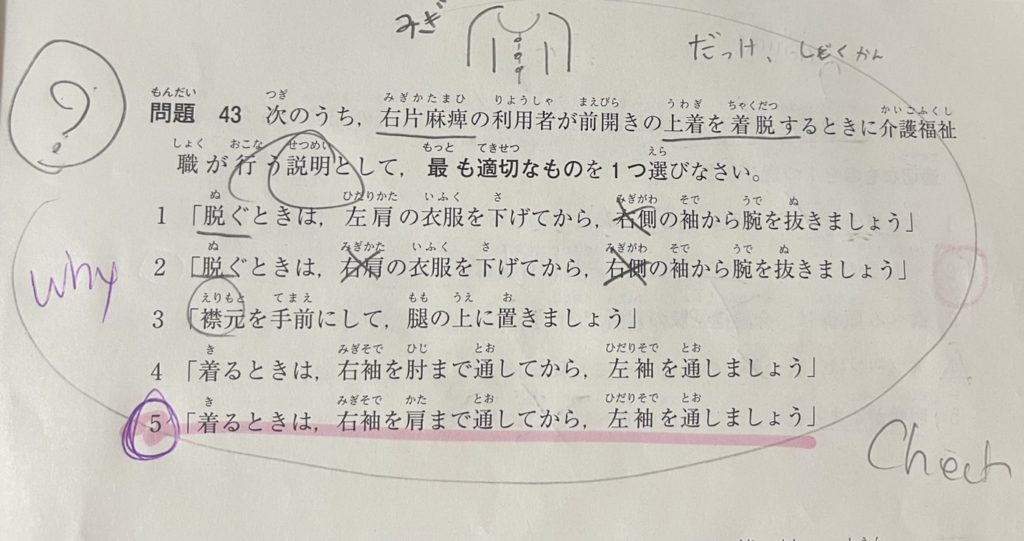 みぎ
だっけ、しどくかん
?
問題 43 次のうち，右片麻痺の利用者が前開きの上着を着脱するときに介護福祉
職が行う説明として，最も適切なものを1つ選びなさい。
1 「脱ぐときは，左肩の衣服を下げてから，右側の袖から腕を抜きましょう」
2 「脱ぐときは，右肩の衣服を下げてから，右側の袖から腕を抜きましょう」
why
3 「襟元を手前にして，腿の上に置きましょう」
4 「着るときは，右袖を肘まで通してから，左袖を通しましょう」
5 「着るときは，右袖を肩まで通してから，左袖を通しましょう」
Check